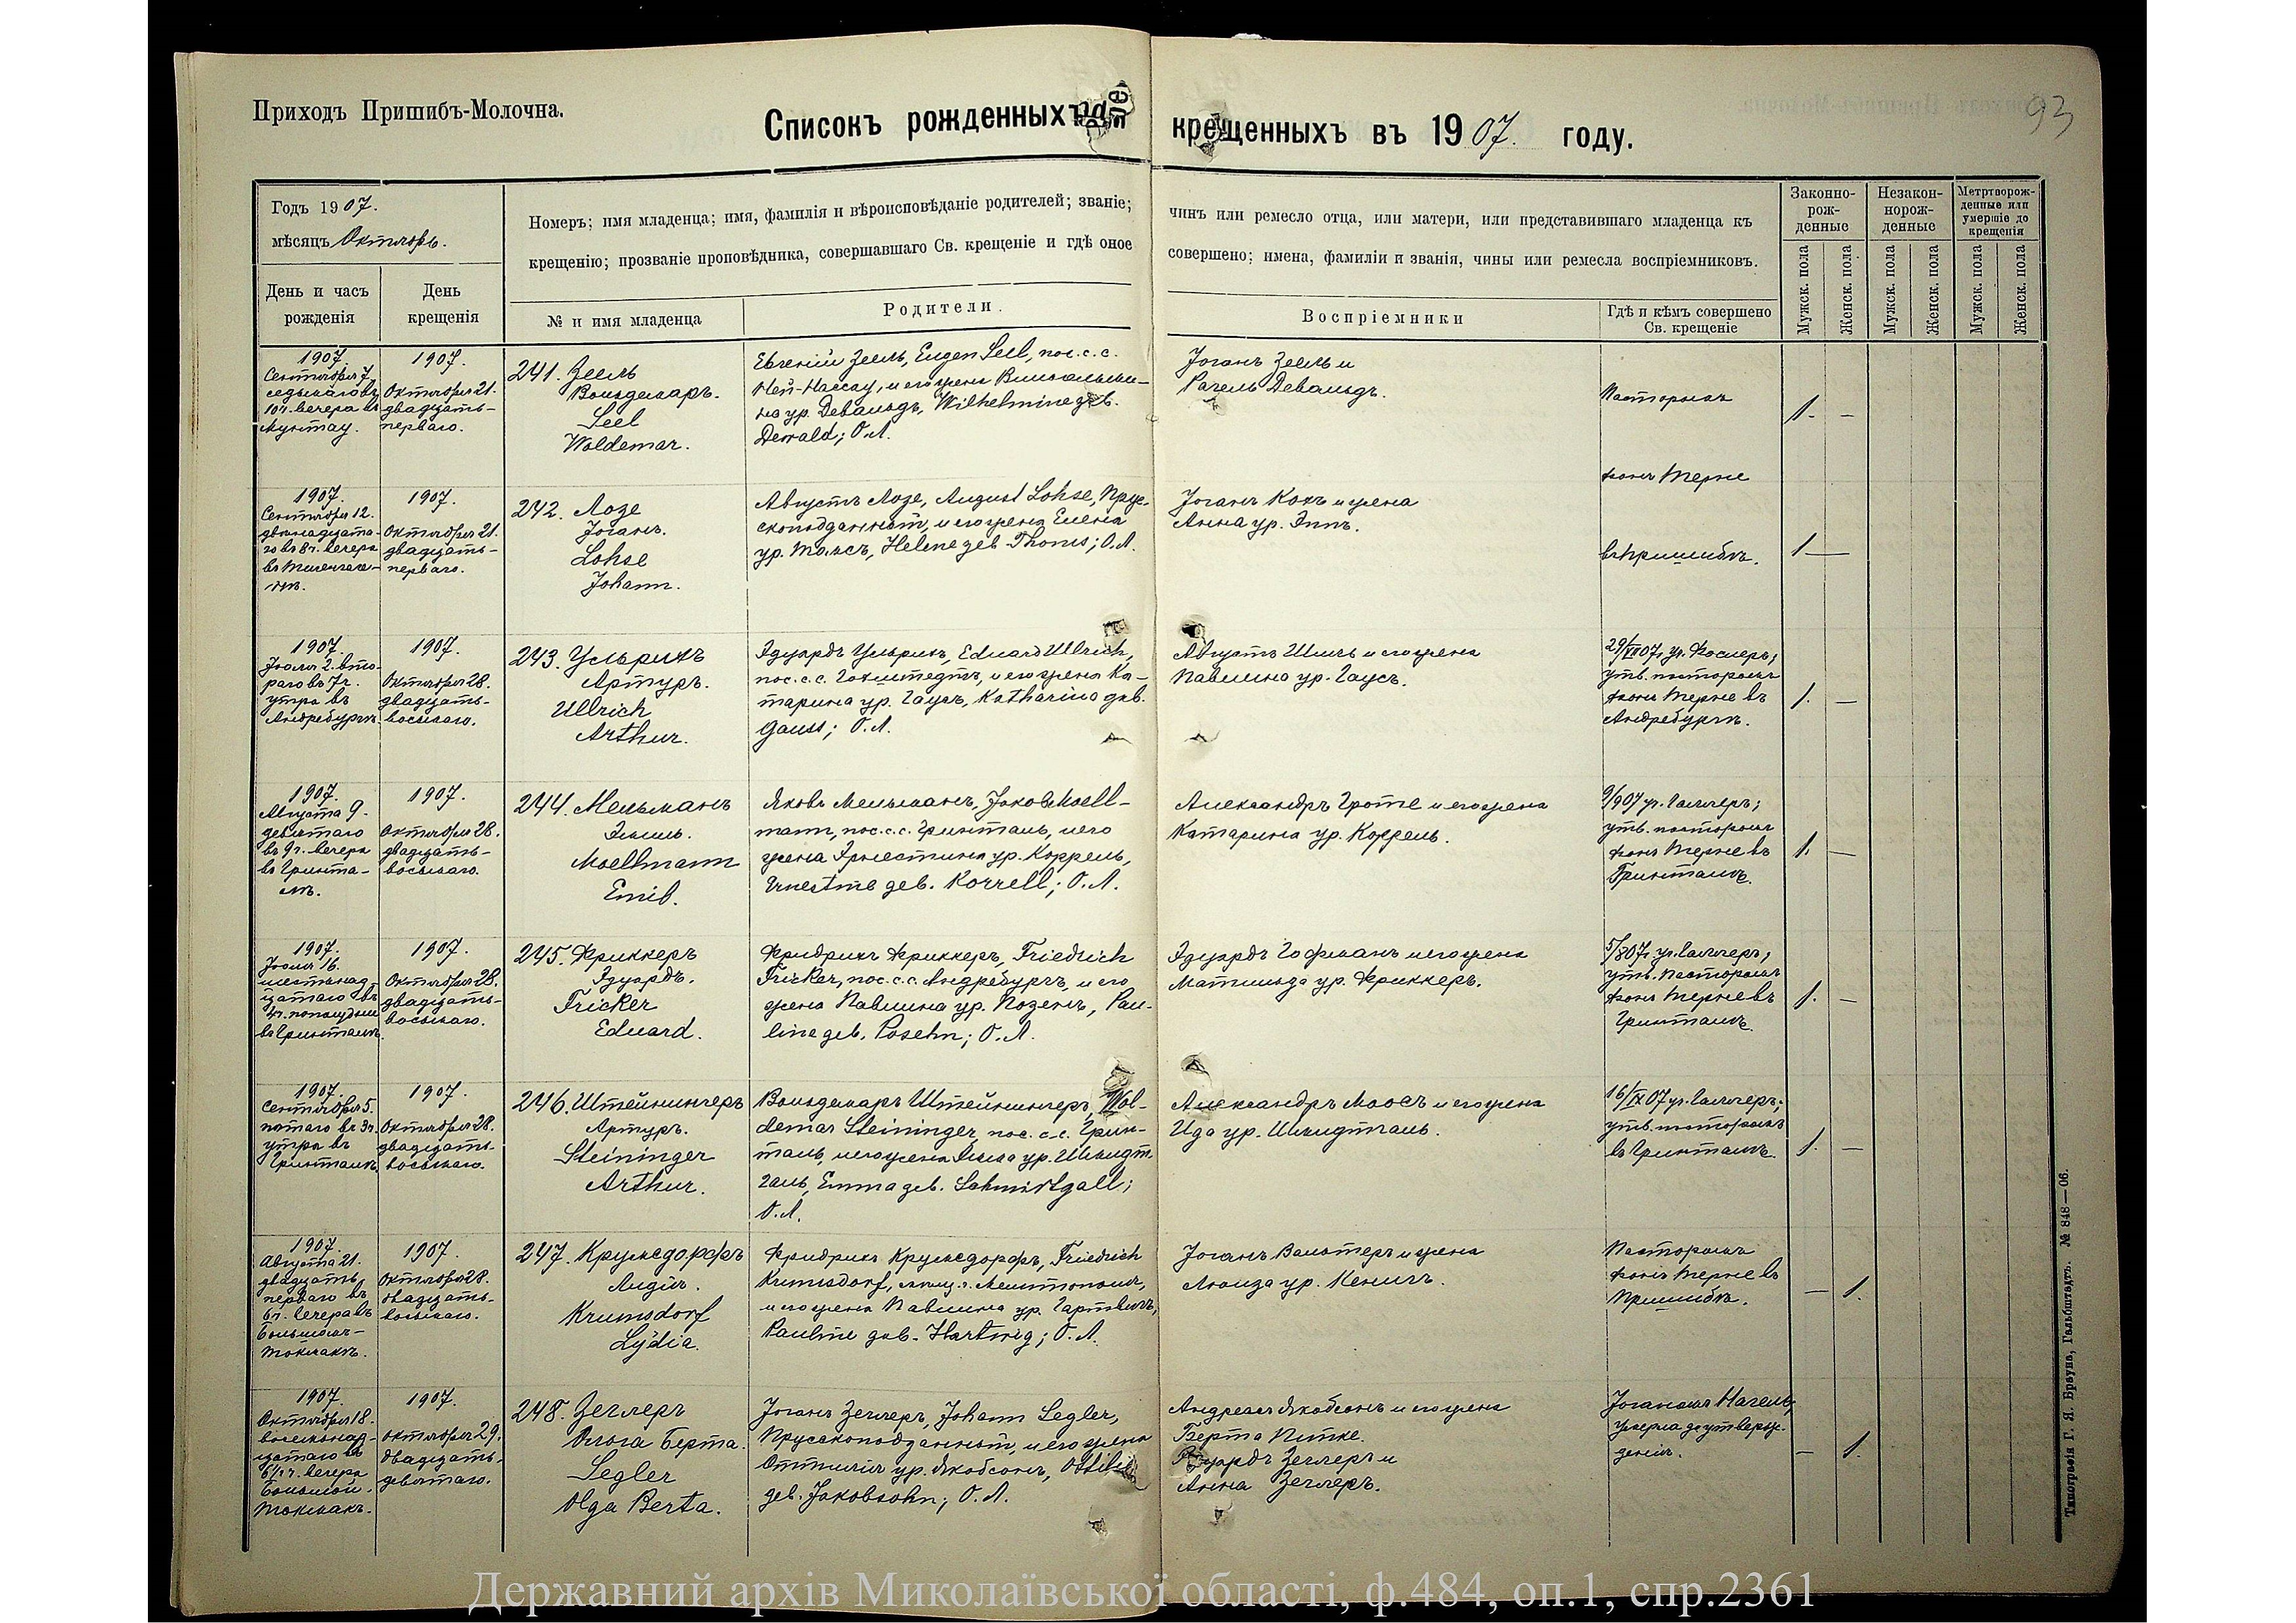 Приходъ Пришибъ-Молочна.
93
Списокъ рожденныхъ
крещенныхъ въ 1907. году.
Годъ 1907.
мѣсяцъ Октябрь.
День и часъ рожденія
День крещенія
Номеръ; имя младенца; имя, фамилія и вѣроисповѣданіе родителей; званіе;
крещенію; прозваніе проповѣдника, совершавшаго Св. крещеніе и гдѣ оное
№ и имя младенца
Родители.
чинъ или ремесло отца, или матери, или представившаго младенца къ
совершено; имена, фамиліи и званія, чины или ремесла воспріемниковъ.
Воспріемники
Гдѣ и кѣмъ совершено
Св. крещеніе
Законно-
рож-
денные
Незакон-
норож-
денные
Метртворож-
денные или
умершіе до
крещенія
Мужск. пола
Женск. пола
Мужск. пола
Женск. пола
Мужск. пола
Женск. пола
1907.
Сентября 7
седьмаго въ
10 ч. вечера въ
Мунтау.
1907.
Октября 21.
двадцать-
перваго.
241. Зеель
Вольдемаръ.
Seel
Woldemar.
Евгеній Зеель, Eugen Seel, пос. с. с.
Ней-Нассау, и его жена Вильгельми-
на ур. Девальдъ, Wilhelmine geb.
Dewald; О.Л.
Іоганъ Зеель и
Рахель Девальдъ.
Пасторомъ
фонъ Терне
въ Пришибѣ.
1. –
1907.
Сентября 12.
двѣнадцата-
го въ 8 ч. вечера
1907.
Октября 21.
двадцать-
перваго.
242. Лозе
Іоганъ.
Lohse
Johann.
Августъ Лозе, August Lohse, Прус-
скоподданный, и его жена Елена
ур. Томсъ, Helene geb Thoms; О.Л.
Іоганъ Кохъ и жена
Анна ур. Эппъ.
1 –
1907.
Іюля 2. вто-
раго въ 7 ч.
утра въ
Андребургѣ.
1907.
Октября 28.
двадцать-
восьмаго.
243. Ульрихъ
Артуръ.
Ullrich
Arthur.
Эдуардъ Ульрихъ, Eduard Ullrich,
пос. с. с. Гохштедтъ, и его жена Ка-
тарина ур. Гаусъ, Katharina geb.
Gauss; О.Л.
Августъ и его жена
Павлина ур. Гаусъ.
29/VII 07 г. уч.
утв. пасторомъ
фонъ Терне въ
Андребургѣ.
1. –
1907.
Августа 9.
девятаго
въ 9 ч. вечера
въ Гринта-
лѣ.
1907.
Октября 28.
двадцать-
восьмаго.
244. Мельманъ
Эмиль.
Moellmann
Emil.
Яковъ Мельманъ, Jakob Moell-
mann, пос. с. с. Гринталь, и его
жена Эрнестина ур. Коррель,
Ernestine geb. Korrell; О.Л.
Александръ Гроте и его жена
Катарина ур. Коррель.
уч. Галлеръ;
утв. пасторомъ
фонъ Терне въ
Гринталѣ.
1. –
1907.
Іюля 16.
шестнад-
цатаго въ
4 ч. пополудни
въ Гринталѣ.
1907.
Октября 28.
двадцать-
восьмаго.
245. Фриккеръ
Эдуардъ.
Fricker
Eduard.
Фридрихъ Фриккеръ, Friedrich
Fricker, пос. с. с. Андребургъ, и его
жена Павлина ур. Позенъ, Pau-
line geb. Posehn; О.Л.
Эдуардъ Гофманъ и его жена
Матильда ур. Фриккеръ.
уч. Галлеръ;
утв. Пасторомъ
фонъ Терне въ
Гринталѣ.
1. –
1907.
Сентября 5.
пятаго въ 3 ч.
утра въ
Гринталѣ.
1907.
Октября 28.
двадцать-
восьмаго.
246. Штейнингеръ
Артуръ.
Steininger
Arthur.
Вольдемаръ Штейнингеръ, Wol-
demar Steininger, пос. с. с. Грин-
таль, и его жена Эмма ур. Шмидт-
галь, Emma geb. Schmidtgall;
О.Л.
Александръ Моосъ и его жена
Ида ур. Шмидтгаль.
16/IX 07 уч. Галлеръ;
утв. пасторомъ
въ Гринталѣ.
1. –
1907.
Августа 21.
двадцать
перваго въ
6 ч. вечера въ
Большомъ-
Токмакѣ.
1907.
Октября 28.
двадцать-
восьмаго.
247. Крумсдорфъ
Лидія.
Krumsdorf
Lydia.
Фридрихъ Крумсдорфъ, Friedrich
Krumsdorf, мѣщ. г. Мелитополя,
и его жена Павлина ур. Гартвигъ,
Pauline geb. Hartwig; О.Л.
Іоганъ Вальтеръ и жена
Луиза ур. Кенигъ.
Пасторомъ
фонъ Терне въ
Пришибѣ.
– 1.
1907.
Октября 18.
восемнад-
цатаго въ
6½ ч. вечера
Большой
Токмакъ.
1907.
Октября 29.
двадцать-
девятаго.
248. Зеглеръ
Ольга Берта.
Segler
Olga Berta.
Іоганъ Зеглеръ, Johann Segler,
Прусскоподданный, и его жена
Оттилія ур. Якобсонъ, Ottilie
geb. Jakobsohn; О.Л.
Андреасъ Якобсонъ и его жена
Берта Питке.
Эдуардъ Зеглеръ и
Анна Зеглеръ.
Іоганомъ Нагель,
умерла до утверж-
денія.
– 1.
Типографія Г. Я. Брауна, Гальбштадтъ. № 848—06.
Державний архів Миколаївської області, ф.484, оп.1, спр.2361